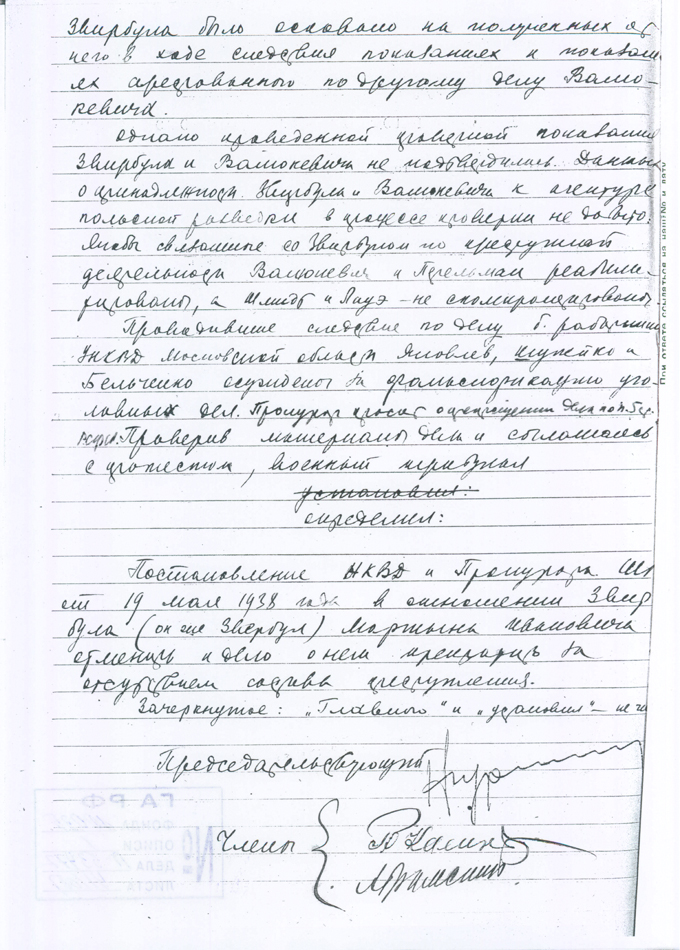 Звирбула было основано на полученных от
него в ходе следствия показаниях и показани
ях арестованного по другому делу Валю-
кевича.
Однако проведенной проверкой показания
Звирбула и Валюкевича не подтвердились. Данных
о принадлежности Звирбула и Валюкевича к агентуре
польской разведки в процессе проверки не добыто.
Якобы связанные со Звирбулом по преступной
деятельности Валюкевич и Пегельман реабили-
тированы, а Шмидт и Лауэ – не скомпрометированы.
Проводившие следствие по делу б. работники
УНКВД Московской области Яковлев, Шужейко и
Бельченко осуждены за фальсификацию уго-
ловных дел. Прокурор просит о прекращении дела по
Проверив материалы дела и соглашаясь
с протестом, военный трибунал
установил:
определил:
Постановление НКВД и Прокурора
от 19 мая 1938 года в отношении Звир
була (он же Звербул) Мартына Ивановича
отменить и дело о нем прекратить за
отсутствием состава преступления.
Зачеркнутое: „Главного" и „установил" – не чи
Председательствующий
Члены
При ответе ссылаться на наш № и дату
ГА РФ
ФОНД
ОПИСИ
№
ДЕЛА
ЛИСТА